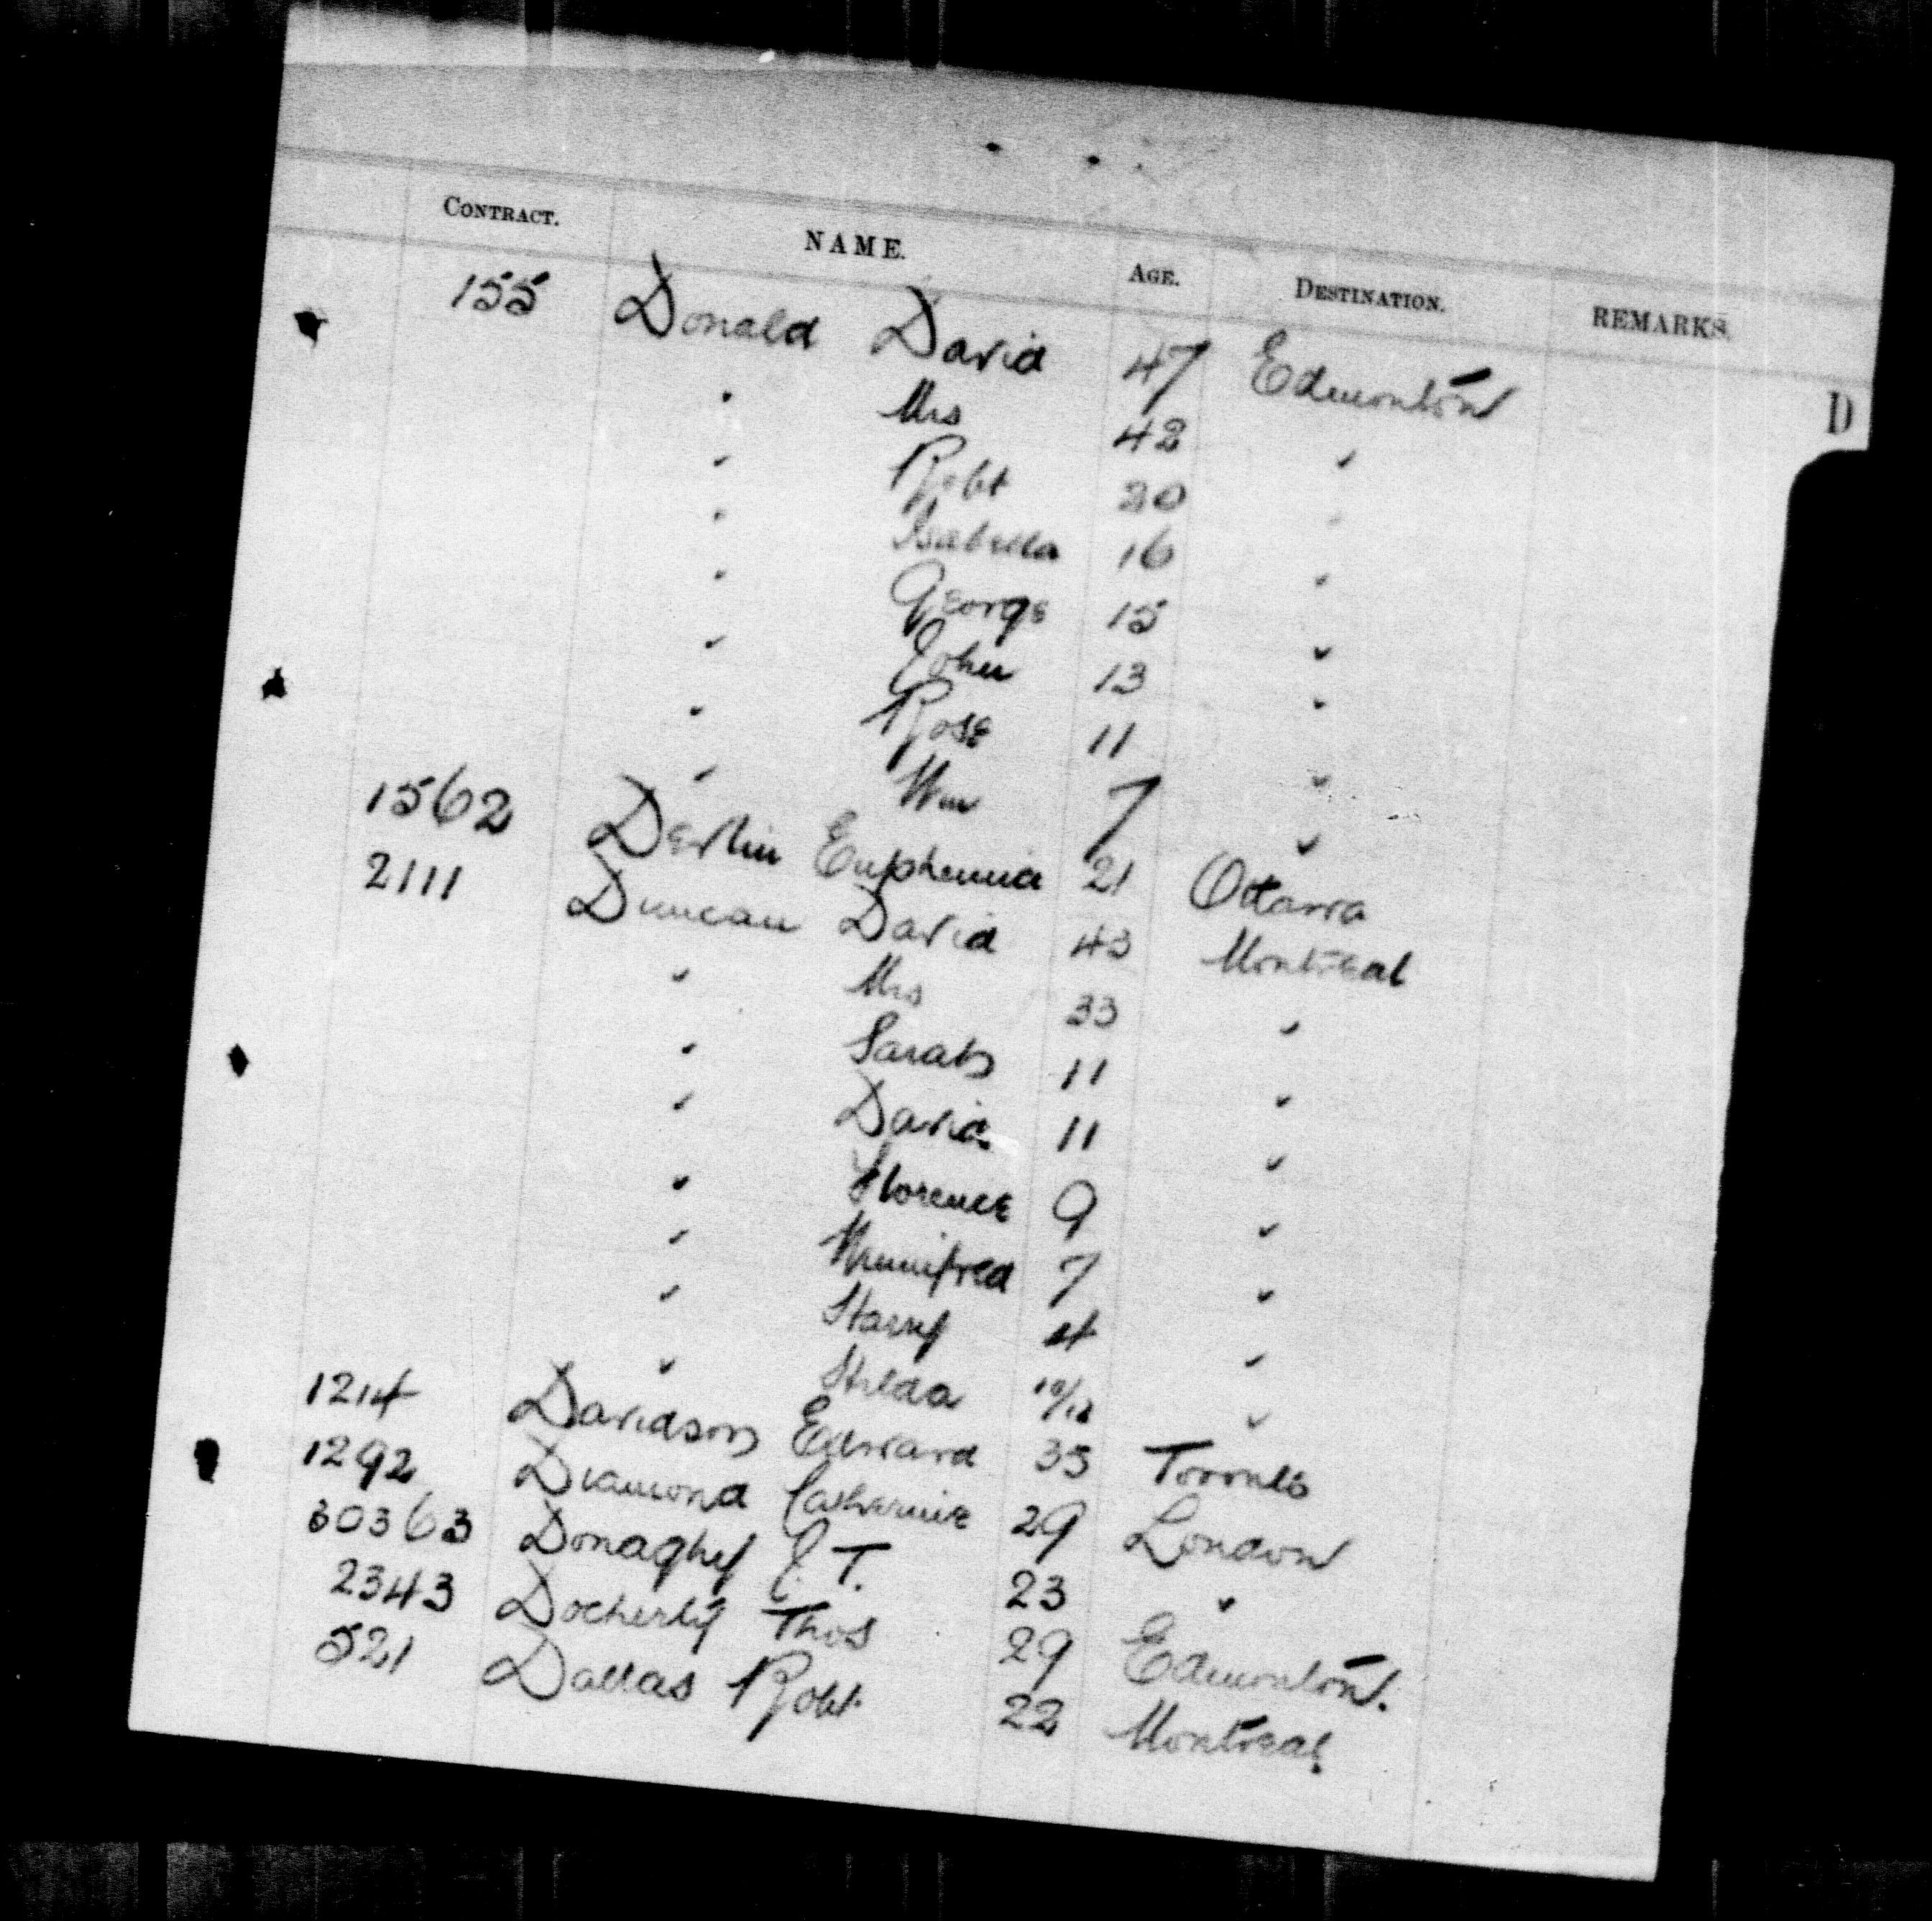 CONTRACT. NAME. AGE. DESTINATION. REMARKS.
D
155 Donald David 47 Edmonton
" Mrs 42 "
" Robt 20 "
" Isabella 16 "
" George 15 "
" John 13 "
" Rose 11 "
" Wm 7 "
1562 Devlin Euphemia 21 Ottawa
2111 Duncan David 43 Montreal
" Mrs 33 "
" Sarah 11 "
" David 11 "
" Florence 9 "
" Winnifred 7 "
" Harry 4 "
" Hilda 10/12 "
1214 Davidson Edward 35 Toronto
1292 Diamond Catherine 29 London
30363 Donaghy J. T. 23 "
2343 Docherty Thos 29 Edmonton.
521 Dallas Robt 22 Montreal.